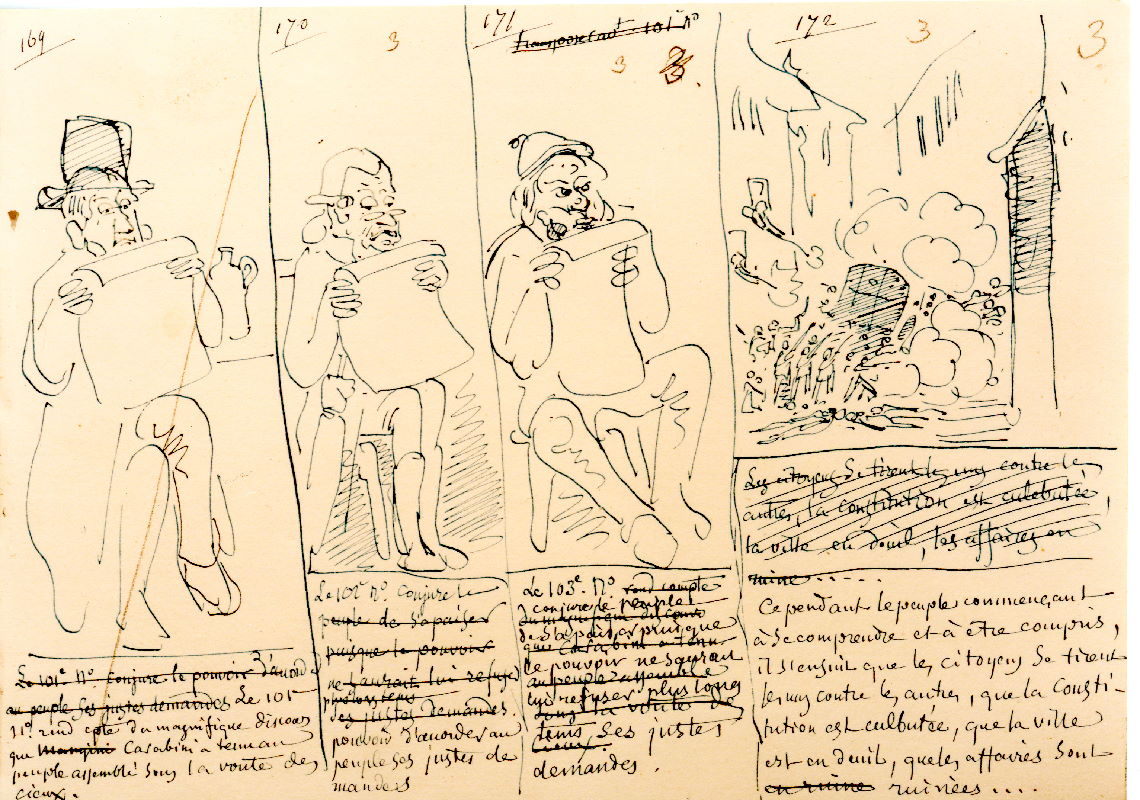 169
Le 101e No. Conjure le pouvoir d'accorder
au peuple ses justes demandes Le 101e
No. rend cpte du magnifique discours
que Mangini Casabini a tenu au
peuple assemblé sous la voute des
cieux.
170
3
Le 102e No. Conjure le
peuple de s'apaiser
puisque le pouvoir
ne saurait lui refuser
plus longtems
ses justes demandes.
pouvoir d'accorder au
peuple ses justes de
mandes
171
101e No
3
3.
Le 103e No rend compte
conjure le peuple
du magnifique discours
de s'apaiser puisque
que Casabini a tenu
le pouvoir ne saurait
au peuple assemblé
lui refuser plus long
sous la voute des
tems, ses justes
cieux.
demandes.
172
3
3
Les citoyens se tirent les uns contre les
autres, la constitution est culebutée,
la ville en deuil, les affaires en
ruine.....
Cependant le peuple commençant
à se comprendre et à être compris,
il s'ensuit que les citoyens se tirent
les uns contre les autres, que la Consti-
tution est culbutée, que la ville
est en deuil, que les affaires sont
en ruine ruinées....